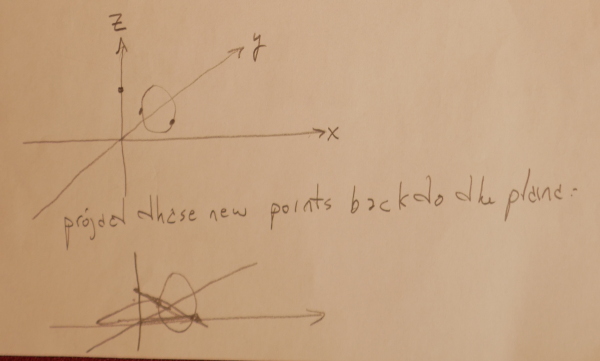 z
y
x
project these new points back to the plane: